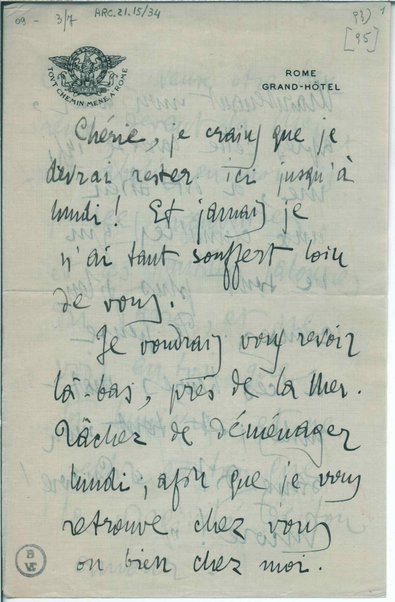 09 - 3/7
ARC.21.15/34
93) 1
[95]
TOUT CHEMIN MENE A ROME
ROME
GRAND-HÔTEL
Chérie, je crains que je
devrai rester ici jusqu'à
lundi! Et jamais je
n'ai tant souffert loin
de vous.
Je voudrais vous revoir
là-bas, près de la Mer.
Tâchez de déménager
lundi, afin que je vous
retrouve chez vous
ou bien chez moi.